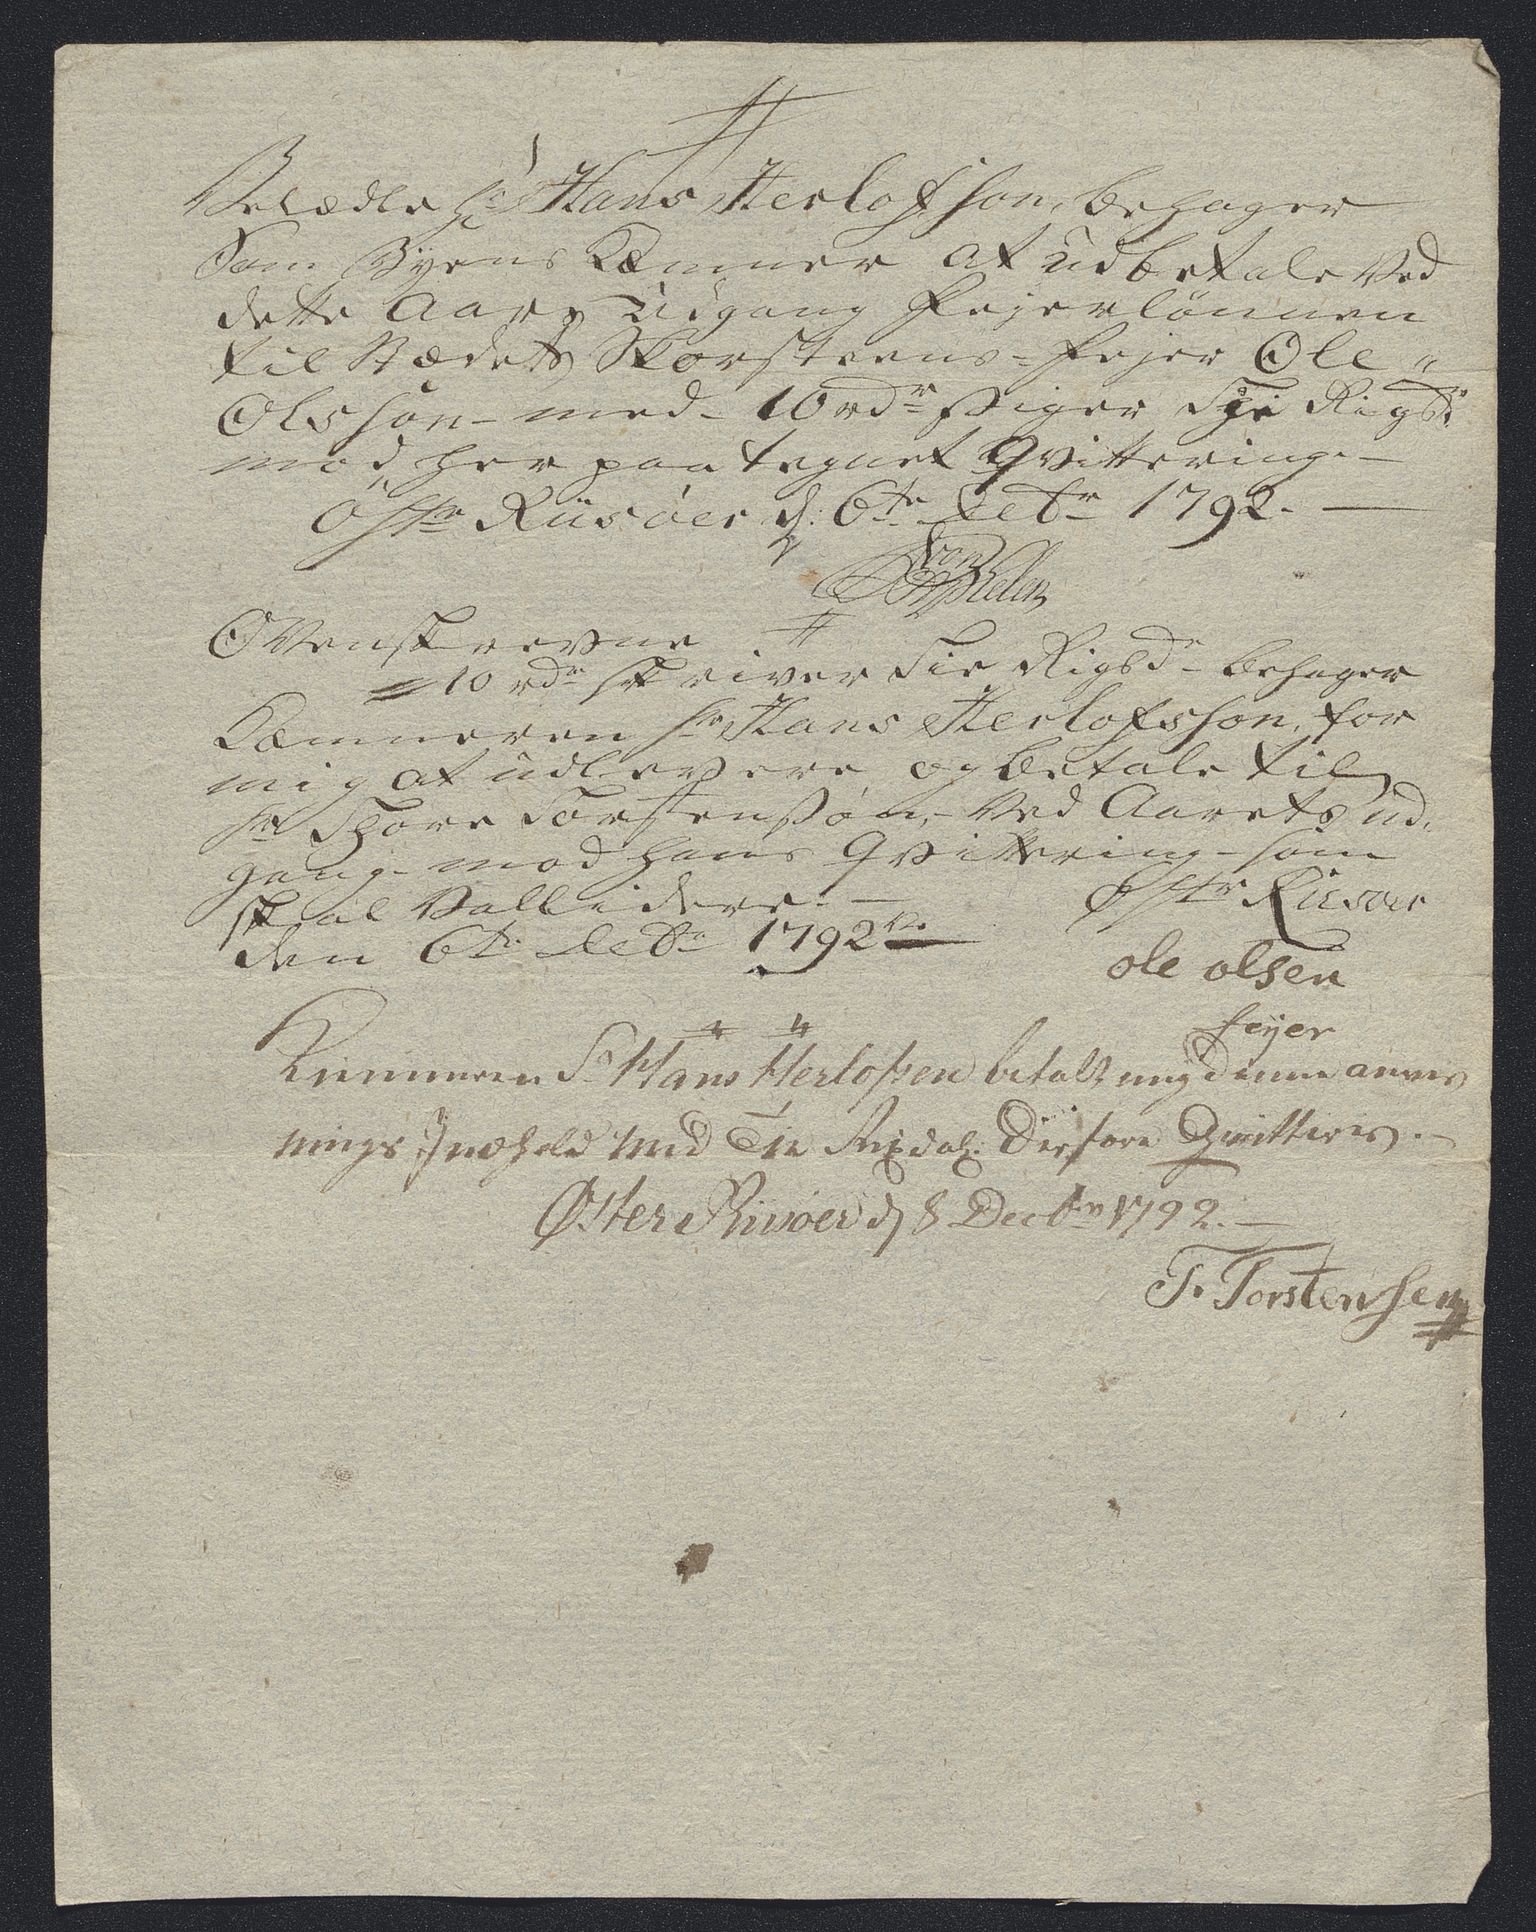 Velædle Hr Hans Herlofson, behager
Som Byens Kæmner at udbetale ved
dette Aars Udgang Fejerlönnen
til Stædets Skorsteens-Fejer Ole
Olsson- med- 10 rdr siger Tie Rigsdr
mod her paa tegnet Qvittering.-
Östr Riisöer d: 6te Decbr 1792.-
von
Ovenskrevne
10 rdr skriver Tie Rigsdr- behager
Kæmneren Hr Hans Herlofsson, for
mig at udlevere og betale til
Hr Thore Torstensön,- ved Aarets ud-
gang- mod hans Qvittering- som
skal Vallidere.-
Östr Riisöer
den 6te Decbr 1792
ole olsen
feyer
Kiemneren Sr Hans Herlofsen betalt mig denne anvis
nings Indhold med Tie Rixdal: Derfore Qvitteres.-
Øster Riisöer d 8 Decbr 1792.-
T. Torstensen